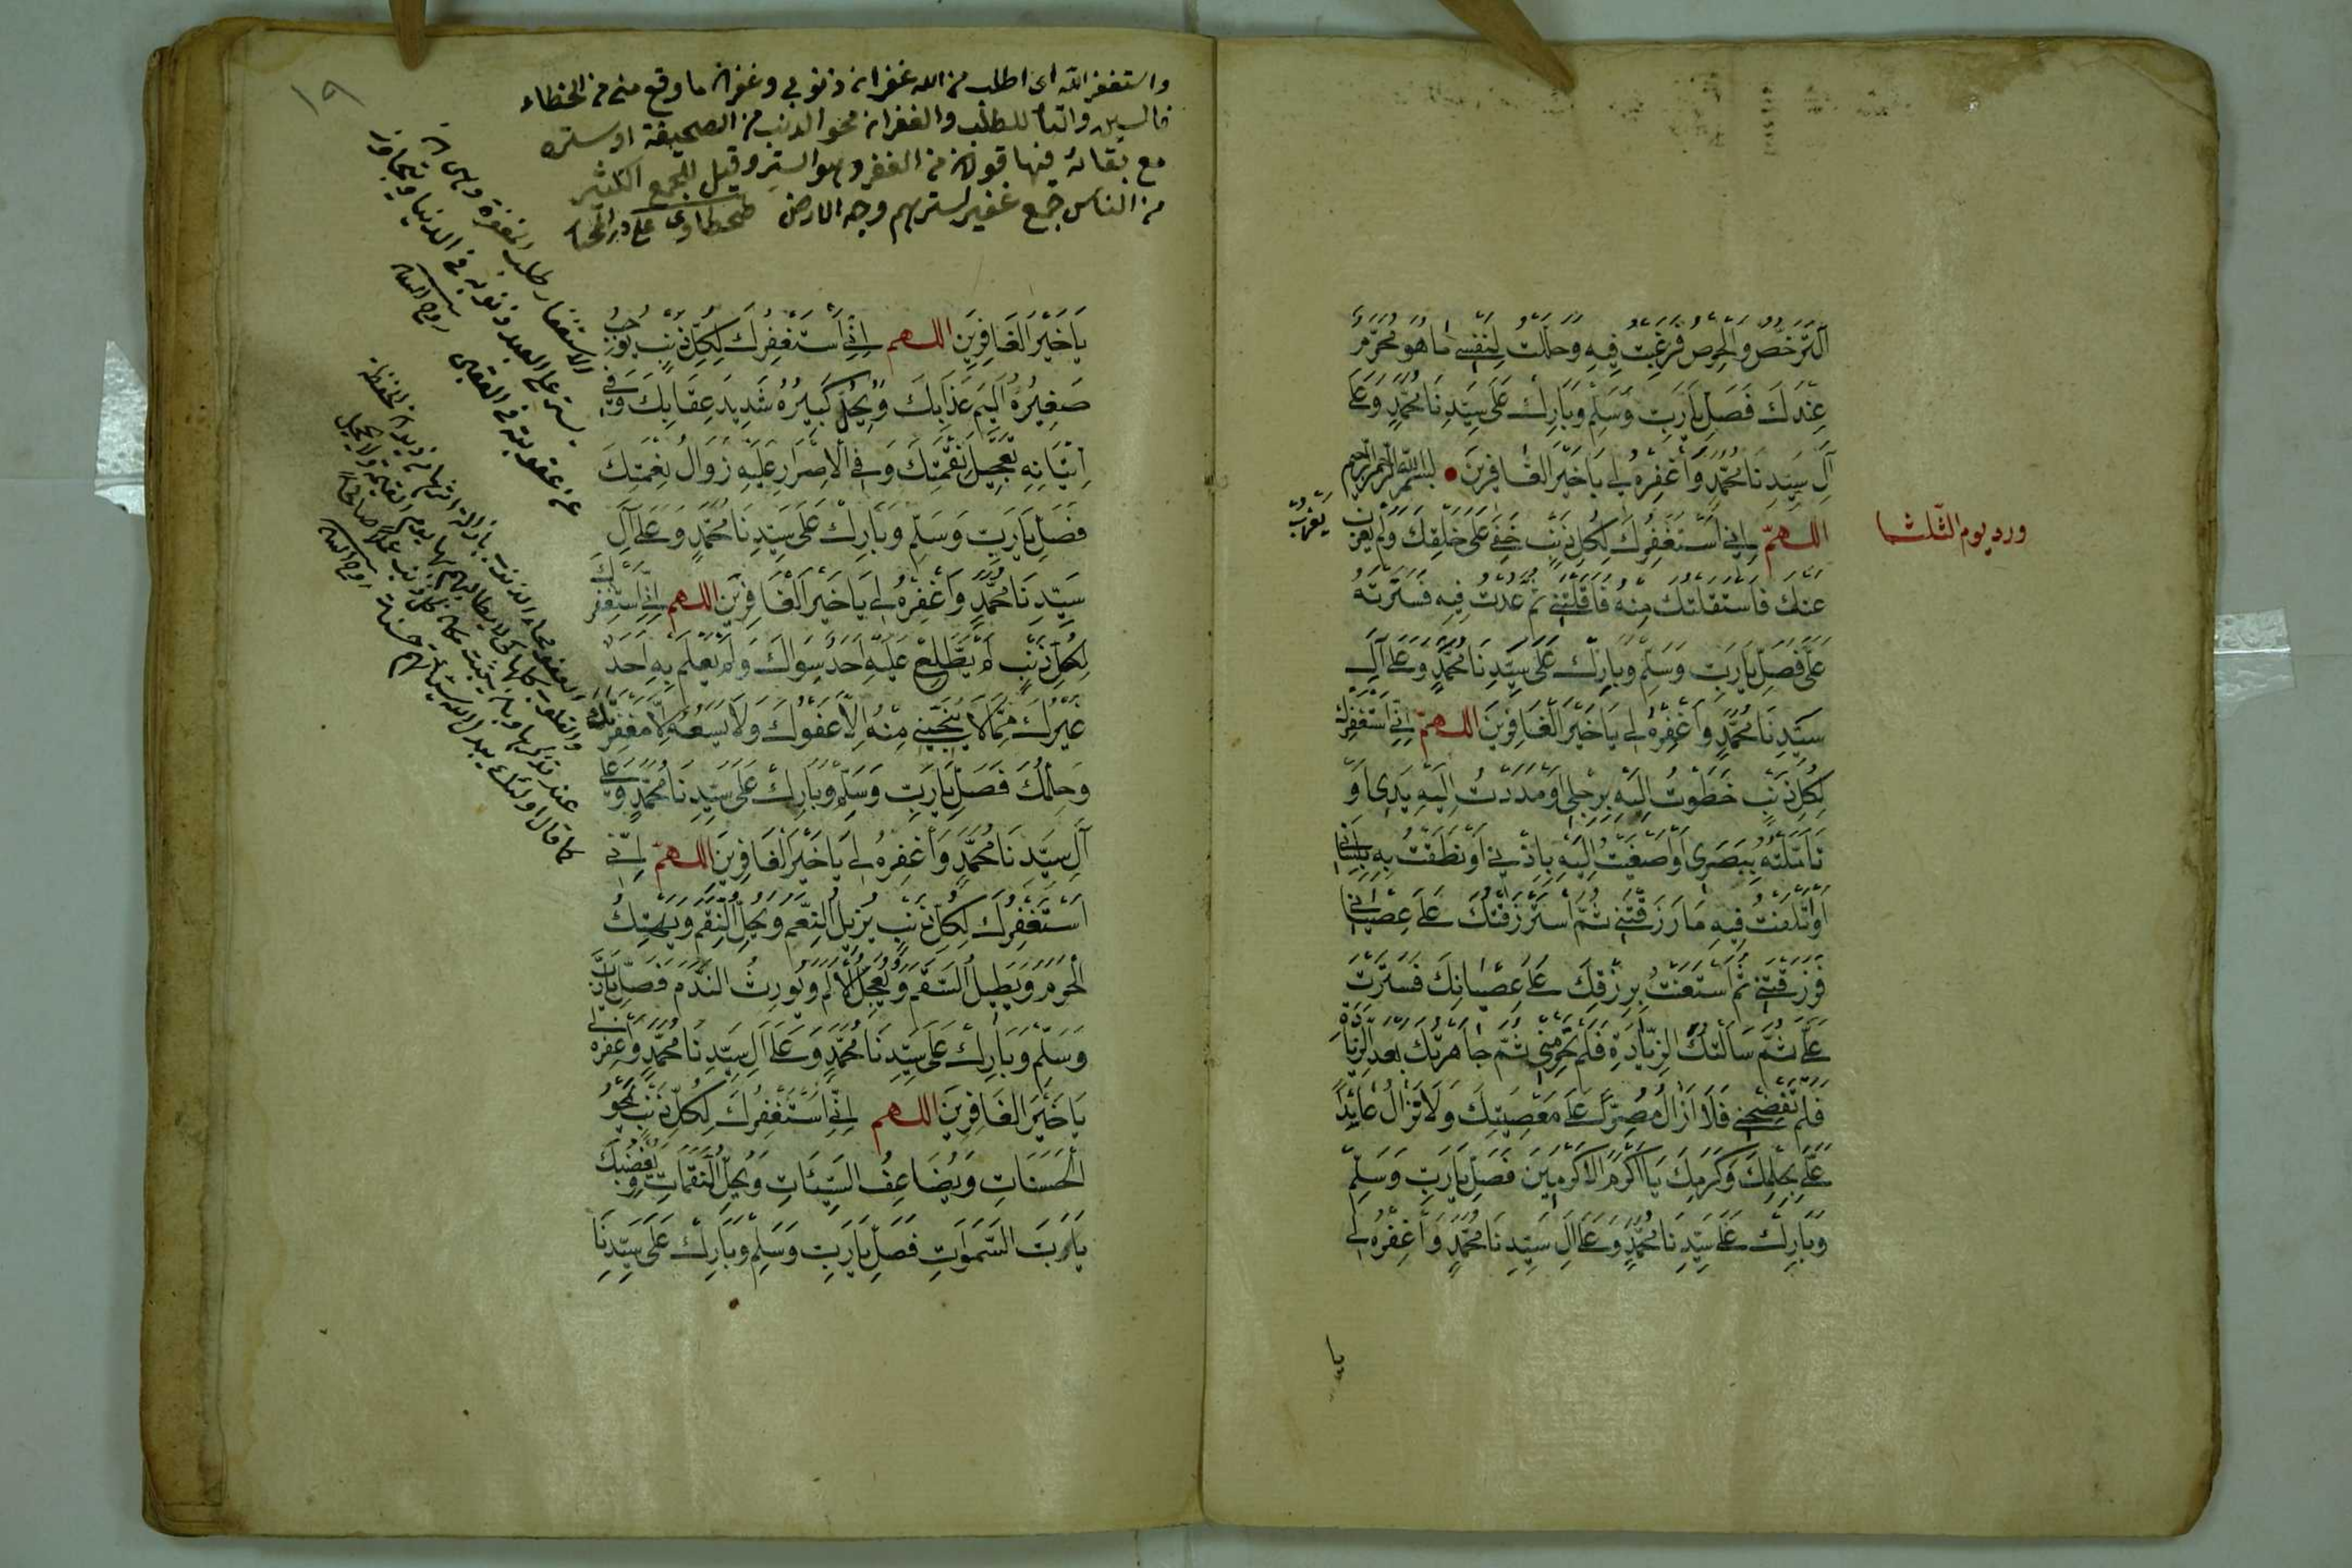 اَلتَّرَخُّصُ وَالْحِرْصُ فَرَغِبْتُ فِيهِ وَحَلَّلْتُ لِنَفْسِي مَا هُوَ مُحَرَّمٌ
عِنْدَكَ فَصَلِّ يَارَبِّ وَسَلِّمْ وَبَارِكْ عَلَى سَيِّدِنَا مُحَمَّدٍ وَعَلَى
آلِ سَيِّدِنَا مُحَمَّدٍ وَاغْفِرْهُ لِي يَا خَيْرَ الْغَافِرِينَ بسم الله الرحمن الرحيم
ورد يوم الثلثا
اللهم اِنِّي اَسْتَغْفِرُكَ لِكُلِّ ذَنْبٍ خَفِيَ عَلَى خَلْقِكَ وَلَمْ يَعْزُبْ
يَعْزُبْ
عَنْكَ فَاسْتَقَلْتُكَ مِنْهُ فَاَقَلْتَنِي ثُمَّ عُدْتُ فِيهِ فَسَتَرْتَهُ
عَلَيَّ فَصَلِّ يَارَبِّ وَسَلِّمْ وَبَارِكْ عَلَى سَيِّدِنَا مُحَمَّدٍ وَعَلَى آلِ
سَيِّدِنَا مُحَمَّدٍ وَاغْفِرْهُ لِي يَا خَيْرَ الْغَافِرِينَ اللهم اِنِّي اَسْتَغْفِرُكَ
لِكُلِّ ذَنْبٍ خَطَوْتُ اِلَيْهِ بِرِجْلِي اَوْ مَدَدْتُ اِلَيْهِ يَدِي اَوْ
تَاَمَّلْتُهُ بِبَصَرِي اَوْ اَصْغَيْتُ اِلَيْهِ بِاُذُنِي اَوْ نَطَقْتُ بِهِ بِلِسَانِي
اَوْ اَتْلَفْتُ فِيهِ مَا رَزَقْتَنِي ثُمَّ اسْتَرْزَقْتُكَ عَلَى عِصْيَانِي
فَرَزَقْتَنِي ثُمَّ اسْتَعَنْتُ بِرِزْقِكَ عَلَى عِصْيَانِكَ فَسَتَرْتَ
عَلَيَّ ثُمَّ سَاَلْتُكَ الزِّيَادَةَ فَلَمْ تَحْرِمْنِي ثُمَّ جَاهَرْتُكَ بَعْدَ الزِّيَادَةِ
فَلَمْ تَفْضَحْنِي فَلَا اَزَالُ مُصِرًّا عَلَى مَعْصِيَتِكَ وَلَا تَزَالُ عَائِدًا
عَلَيَّ بِحِلْمِكَ وَكَرَمِكَ يَا اَكْرَمَ الْاَكْرَمِينَ فَصَلِّ يَارَبِّ وَسَلِّمْ
وَبَارِكْ عَلَى سَيِّدِنَا مُحَمَّدٍ وَعَلَى اٰلِ سَيِّدِنَا مُحَمَّدٍ وَاغْفِرْهُ لِي
يا
١٩
واستغفر الله اى اطلب من الله غفران ذنوبى وغفران ما وقع منى من الخطاء
فالسين والتاء للطلب والغفران محو الذنب من الصحيفة او ستره
مع بقائه فيها قولان من الغفر وهو الستر وقيل للجمع الكثير
من الناس جمع غفير لسترهم وجه الارض طحطاوى على در المختار
الاستغفار طلب المغفرة وهى ان
يستر على العبد ذنوبه فى الدنيا ويتجاوز
عن عقوبته فى العقبى روح البيان
العفو محاء الذنوب بازالة اثرها من ديوان الحفظة
والقلوب كلها كى لا يطالبهم بها يوم القيمة ولا يخجل
عند تذكرها وبان يثبت مكان كل ذنب عملا صالحا
كما قال اولئك يبدل الله سيئاتهم حسنات روح البيان
يَاخَيْرَ الْغَافِرِينَ اللهم اِنِّي اَسْتَغْفِرُكَ لِكُلِّ ذَنْبٍ يُوجِبُ
صَغِيرُهُ اَلِيمَ عَذَابِكَ وَيُحِلُّ كَبِيرُهُ شَدِيدَ عِقَابِكَ وَفِي
اِتْيَانِهِ تَعْجِيلُ نِقْمَتِكَ وَفِي الْاِصْرَارِ عَلَيْهِ زَوَالُ نِعْمَتِكَ
فَصَلِّ يَارَبِّ وَسَلِّمْ وَبَارِكْ عَلَى سَيِّدِنَا مُحَمَّدٍ وَعَلَى آلِ
سَيِّدِنَا مُحَمَّدٍ وَاغْفِرْهُ لِي يَاخَيْرَ الْغَافِرِينَ اللهم اِنِّي اَسْتَغْفِرُكَ
لِكُلِّ ذَنْبٍ لَمْ يَطَّلِعْ عَلَيْهِ اَحَدٌ سِوَاكَ وَلَمْ يَعْلَمْ بِهِ اَحَدٌ
غَيْرُكَ مِمَّا لَا يُنَجِّينِي مِنْهُ اِلَّا عَفْوُكَ وَلَا يَسَعُهُ اِلَّا مَغْفِرَتُكَ
وَحِلْمُكَ فَصَلِّ يَارَبِّ وَسَلِّمْ وَبَارِكْ عَلَى سَيِّدِنَا مُحَمَّدٍ وَعَلَى
آلِ سَيِّدِنَا مُحَمَّدٍ وَاغْفِرْهُ لِي يَاخَيْرَ الْغَافِرِينَ اللهم اِنِّي
اَسْتَغْفِرُكَ لِكُلِّ ذَنْبٍ يُزِيلُ النِّعَمَ وَيُحِلُّ النِّقَمَ وَيَهْتِكُ
الْحُرَمَ وَيُطِيلُ السَّقَمَ وَيُعَجِّلُ الْاَلَمَ وَيُورِثُ النَّدَمَ فَصَلِّ يَارَبِّ
وَسَلِّمْ وَبَارِكْ عَلَى سَيِّدِنَا مُحَمَّدٍ وَعَلَى اَلِ سَيِّدِنَا مُحَمَّدٍ وَاغْفِرْهُ لِي
يَاخَيْرَ الْغَافِرِينَ اللهم اِنِّي اَسْتَغْفِرُكَ لِكُلِّ ذَنْبٍ يَمْحُو
الْحَسَنَاتِ وَيُضَاعِفُ السَّيِّئَاتِ وَيُحِلُّ النَّقِمَاتِ وَيُغْضِبُكَ
يَارَبَّ السَّمٰوَاتِ فَصَلِّ يَارَبِّ وَسَلِّمْ وَبَارِكْ عَلَى سَيِّدِنَا